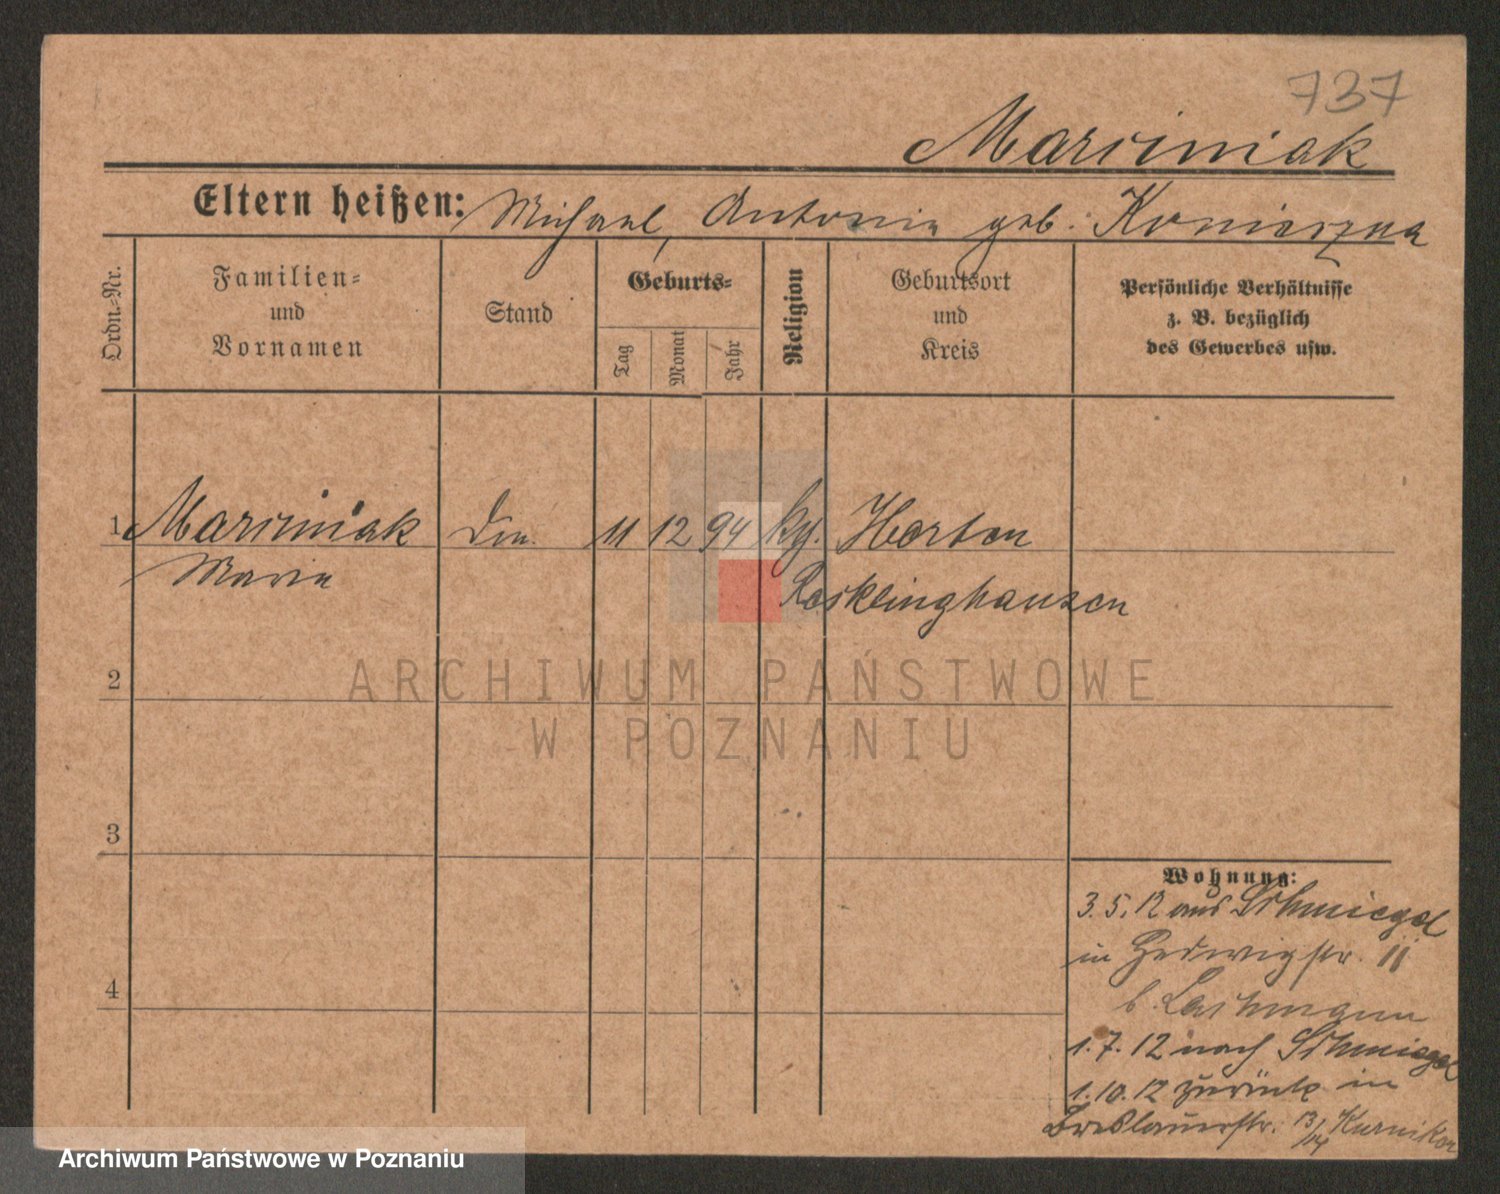 737
Marciniak
Eltern heißen: Michael, Antonie geb. Konieczna
Ordn.-Nr.
Familien-
und
Vornamen
Stand
Geburts-
Tag
Monat
Jahr
Religion
Geburtsort
und
Kreis
Persönliche Verhältnisse
z. B. bezüglich
des Gewerbes usw.
1 Marciniak Die. 11 12 94 kg. Herten
Marie Recklinghausen
ARCHIWUM PAŃSTWOWE
W POZNANIU
2
3
4
Wohnung:
3.5.12 aus Schmiegel
in Hedwigstr. 11
b.
1.7.12 nach Schmiegel
1.10.12 zurück in
Breslauerstr. 13/14
Archiwum Państwowe w Poznaniu